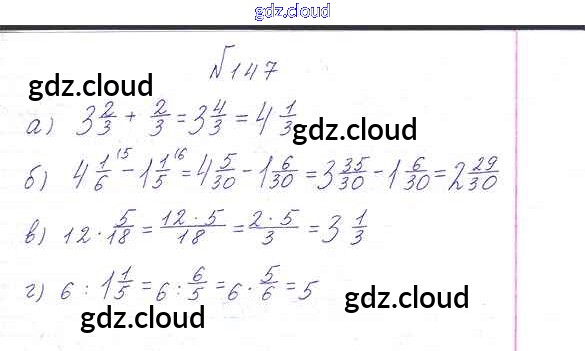 gdz.cloud
№147
gdz.cloud
а) 3 2/3 + 2/3 = 3 4/3 = 4 1/3
gdz.cloud
б) 4 1/6 ⁽⁵ - 1 1/5 ⁽⁶ = 4 5/30 - 1 6/30 = 3 35/30 - 1 6/30 = 2 29/30
в) 12 · 5/18 = 12 · 5/18 = 2 · 5/3 = 3 1/3
г) 6 : 1 1/5 = 6 : 6/5 = 6 · 5/6 = 5
gdz.cloud
gdz.cloud